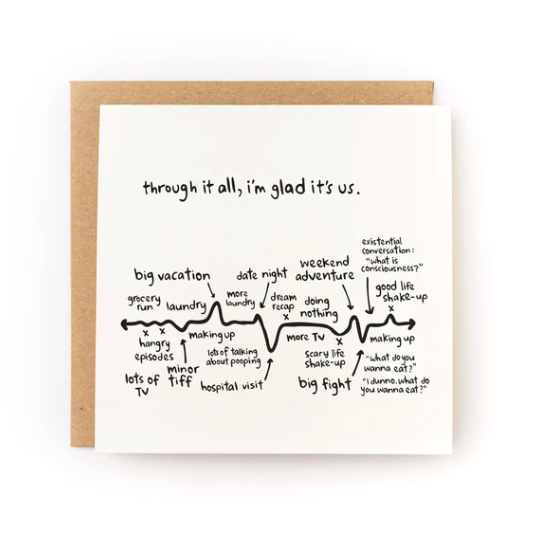 through it all, i'm glad it's us.
existential
conversation:
"what is
consciousness?"
big vacation
date night
weekend
adventure
good life
shake-up
grocery
run
laundry
more
laundry
dream
recap
doing
nothing
x x
hangry
episodes
making up
lots of talking
about pooping
x
more TV
x
scary life
shake-up
x
making up
lots of
TV
minor
tiff
hospital visit
big fight
"what do you
wanna eat?"
"I dunno. what do
you wanna eat?"